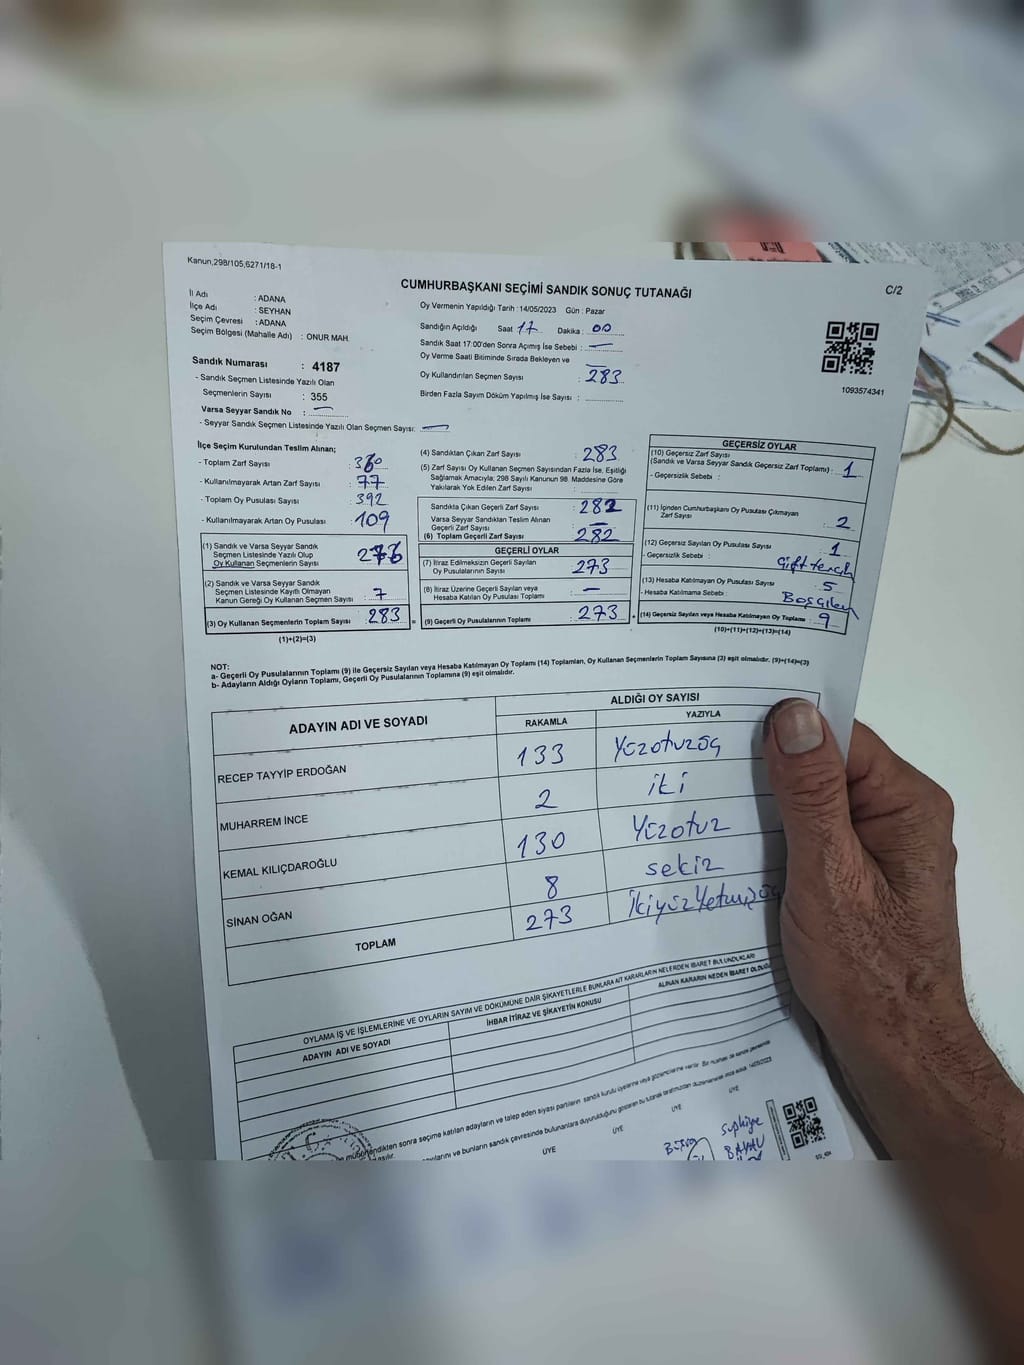 Kanun,298/105,6271/18-1
CUMHURBAŞKANI SEÇİMİ SANDIK SONUÇ TUTANAĞI
C/2
İl Adı : ADANA
İlçe Adı : SEYHAN
Seçim Çevresi : ADANA
Seçim Bölgesi (Mahalle Adı) : ONUR MAH.
Oy Vermenin Yapıldığı Tarih : 14/05/2023 Gün : Pazar
Sandığın Açıldığı Saat 17 Dakika : 00
Sandık Saat 17:00'den Sonra Açımış İse Sebebi : —
Oy Verme Saati Bitiminde Sırada Bekleyen ve
Oy Kullandırılan Seçmen Sayısı : 283
Birden Fazla Sayım Döküm Yapılmış İse Sayısı :
1093574341
Sandık Numarası : 4187
- Sandık Seçmen Listesinde Yazılı Olan
Seçmenlerin Sayısı : 355
Varsa Seyyar Sandık No : —
- Seyyar Sandık Seçmen Listesinde Yazılı Olan Seçmen Sayısı: —
İlçe Seçim Kurulundan Teslim Alınan;
- Toplam Zarf Sayısı : 360
- Kullanılmayarak Artan Zarf Sayısı : 77
- Toplam Oy Pusulası Sayısı : 392
- Kullanılmayarak Artan Oy Pusulası : 109
(1) Sandık ve Varsa Seyyar Sandık
Seçmen Listesinde Yazılı Olup
Oy Kullanan Seçmenlerin Sayısı : 276
(2) Sandık ve Varsa Seyyar Sandık
Seçmen Listesinde Kayıtlı Olmayan
Kanun Gereği Oy Kullanan Seçmen Sayısı : 7
(3) Oy Kullanan Seçmenlerin Toplam Sayısı : 283
(1)+(2)=(3)
(4) Sandıktan Çıkan Zarf Sayısı : 283
(5) Zarf Sayısı Oy Kullanan Seçmen Sayısından Fazla İse, Eşitliği
Sağlamak Amacıyla; 298 Sayılı Kanunun 98. Maddesine Göre
Yakılarak Yok Edilen Zarf Sayısı :
Sandıkta Çıkan Geçerli Zarf Sayısı : 282
Varsa Seyyar Sandıktan Teslim Alınan
Geçerli Zarf Sayısı : —
(6) Toplam Geçerli Zarf Sayısı : 282
GEÇERLİ OYLAR
(7) İtiraz Edilmeksizin Geçerli Sayılan
Oy Pusulalarının Sayısı : 273
(8) İtiraz Üzerine Geçerli Sayılan veya
Hesaba Katılan Oy Pusulası Toplamı : —
= (9) Geçerli Oy Pusulalarının Toplamı : 273
GEÇERSİZ OYLAR
(10) Geçersiz Zarf Sayısı
(Sandık ve Varsa Seyyar Sandık Geçersiz Zarf Toplamı) : 1
- Geçersizlik Sebebi :
(11) İçinden Cumhurbaşkanı Oy Pusulası Çıkmayan
Zarf Sayısı : 2
(12) Geçersiz Sayılan Oy Pusulası Sayısı : 1
- Geçersizlik Sebebi : Çift terch
(13) Hesaba Katılmayan Oy Pusulası Sayısı : 5
- Hesaba Katılmama Sebebi : Boş çıkan
+ (14) Geçersiz Sayılan veya Hesaba Katılmayan Oy Toplamı : 9
(10)+(11)+(12)+(13)=(14)
NOT:
a- Geçerli Oy Pusulalarının Toplamı (9) ile Geçersiz Sayılan veya Hesaba Katılmayan Oy Toplamı (14) Toplamları, Oy Kullanan Seçmenlerin Toplam Sayısına (3) eşit olmalıdır. (9)+(14)=(3)
b- Adayların Aldığı Oyların Toplamı, Geçerli Oy Pusulalarının Toplamına (9) eşit olmalıdır.
ADAYIN ADI VE SOYADI
ALDIĞI OY SAYISI
RAKAMLA YAZIYLA
RECEP TAYYİP ERDOĞAN 133 Yüzotuzüç
MUHARREM İNCE 2 iki
KEMAL KILIÇDAROĞLU 130 Yüzotuz
SİNAN OĞAN 8 sekiz
TOPLAM 273 İkiyüzYetmişüç
OYLAMA İŞ VE İŞLEMLERİNE VE OYLARIN SAYIM VE DÖKÜMÜNE DAİR ŞİKAYETLERLE BUNLARA AİT KARARLARIN NELERDEN İBARET BULUNDUKLARI
ADAYIN ADI VE SOYADI İHBAR İTİRAZ VE ŞİKAYETİN KONUSU ALINAN KARARIN NEDEN İBARET OLDUĞU
sonra seçime katılan adayların ve talep eden siyasi partilerin sandık kurulu üyelerine veya gözlemcilerine verilir. Bir nushası da sandık çevresinde
ve bunların sandık çevresinde bulunanlara duyurulduğunu gösteren bu tutanak tarafımızdan düzenlenerek imza edildi. 14/05/2023
ÜYE ÜYE ÜYE ÜYE